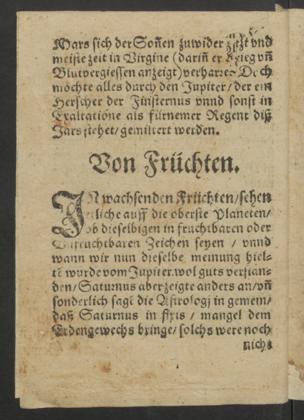 Mars sich der Soñen zuwider setzt vnd
meiste zeit in Virgine (dariñ er Krieg vñ
Blutvergiessen anzeigt) verharret. Doch
möchte alles durch den Jupiter / der ein
Herscher der Finsternus vnnd sonst in
Exaltatione als fürnemer Regent diß
Jars stehet / gemiltert werden.
Von Früchten.
JN wachsenden Früchten / sehen
etliche auff die oberste Planeten /
ob dieselbigen in fruchtbaren oder
Vnfruchtbaren Zeichen seyen / vnnd
wann wir nun dieselbe meinung hiel-
tẽ wurde vom Jupiter wol guts verstan-
den / Saturnus aber zeigte anders an / vñ
sonderlich sagt die Astrologj in gemein /
daß Saturnus in fixis / mangel dem
Erdengewechs bringe / solchs were noch
nicht